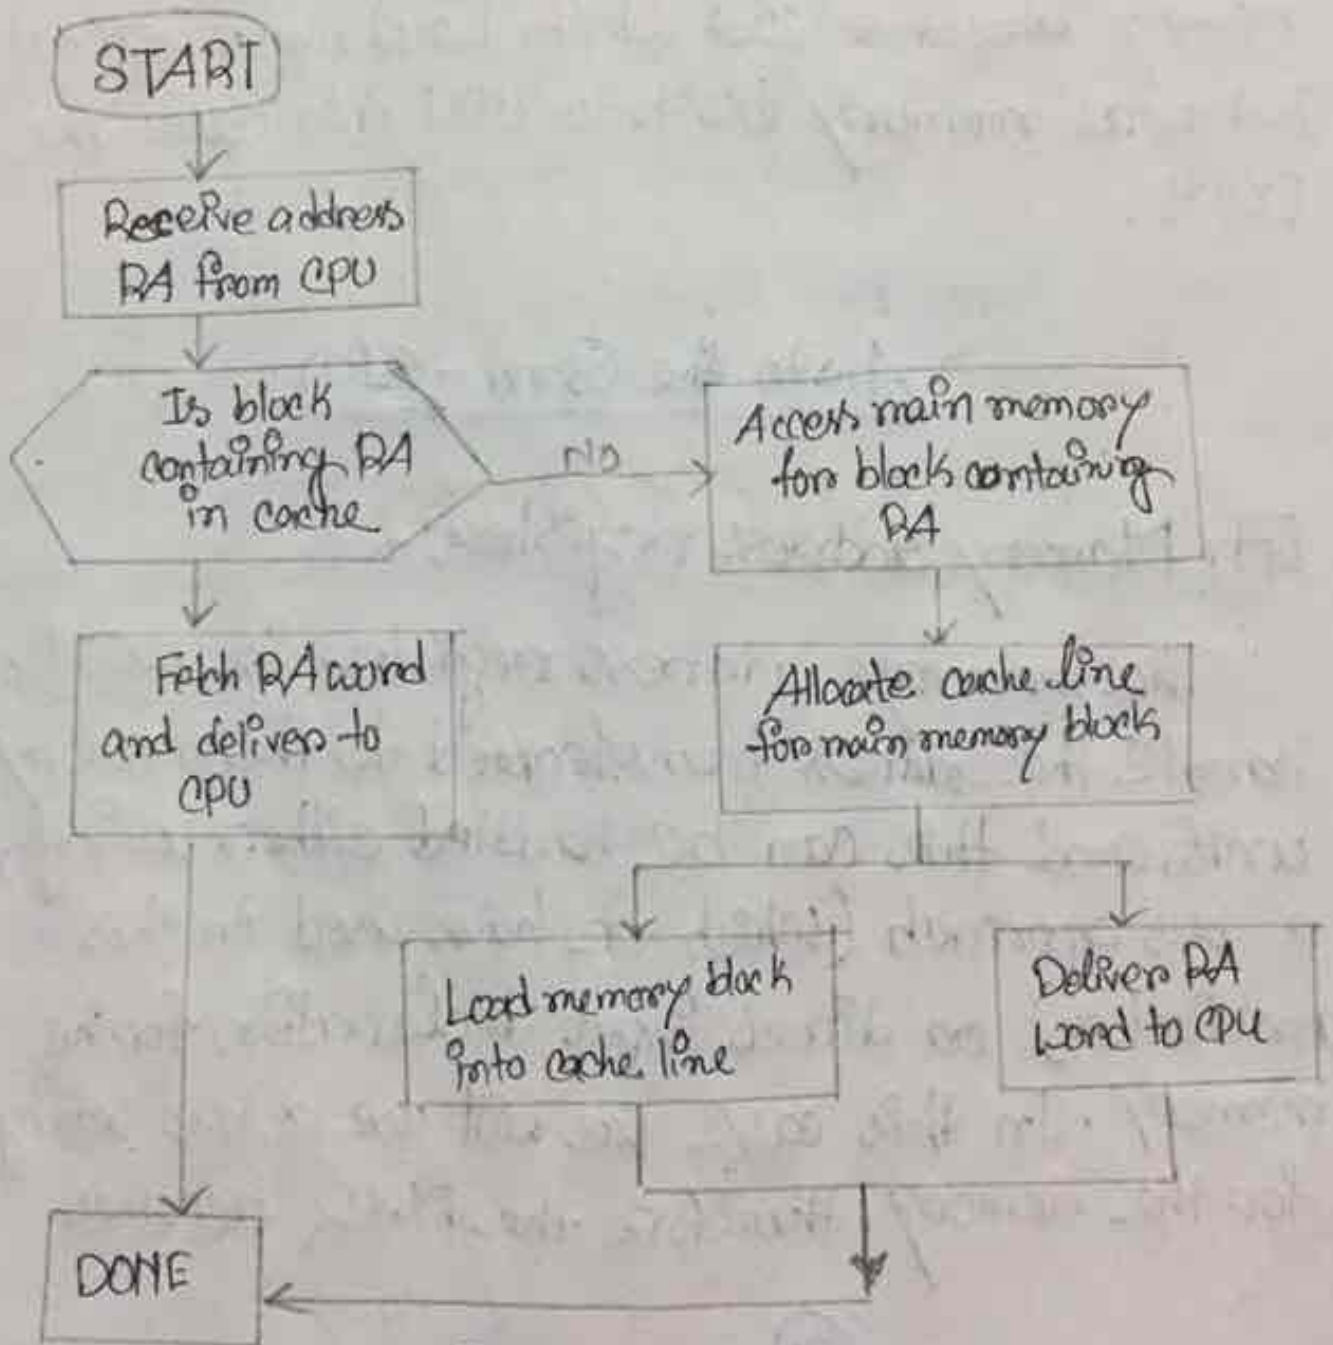 START
Receive address
RA from CPU
Is block
containing RA
in cache
NO
Access main memory
for block containing
RA
Fetch RA word
and deliver to
CPU
Allocate cache line
for main memory block
Load memory block
into cache line
Deliver RA
word to CPU
DONE